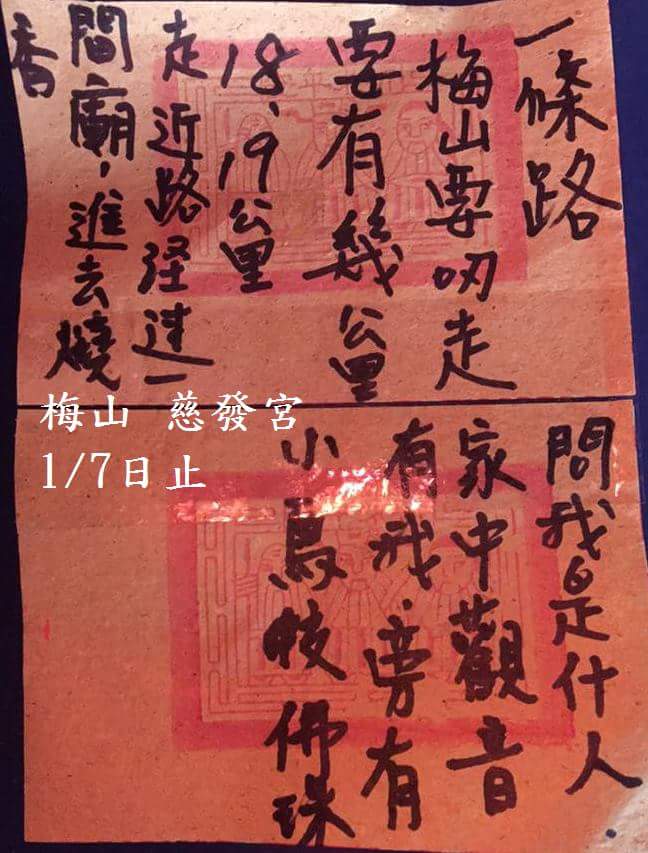 一條路
梅山要叨走
要有幾公里
18、19公里
走近路经过一
間廟，進去燒
香
梅山 慈發宮
1/7日止
問我是什人
家中觀音
有我旁有
小鳥咬佛珠